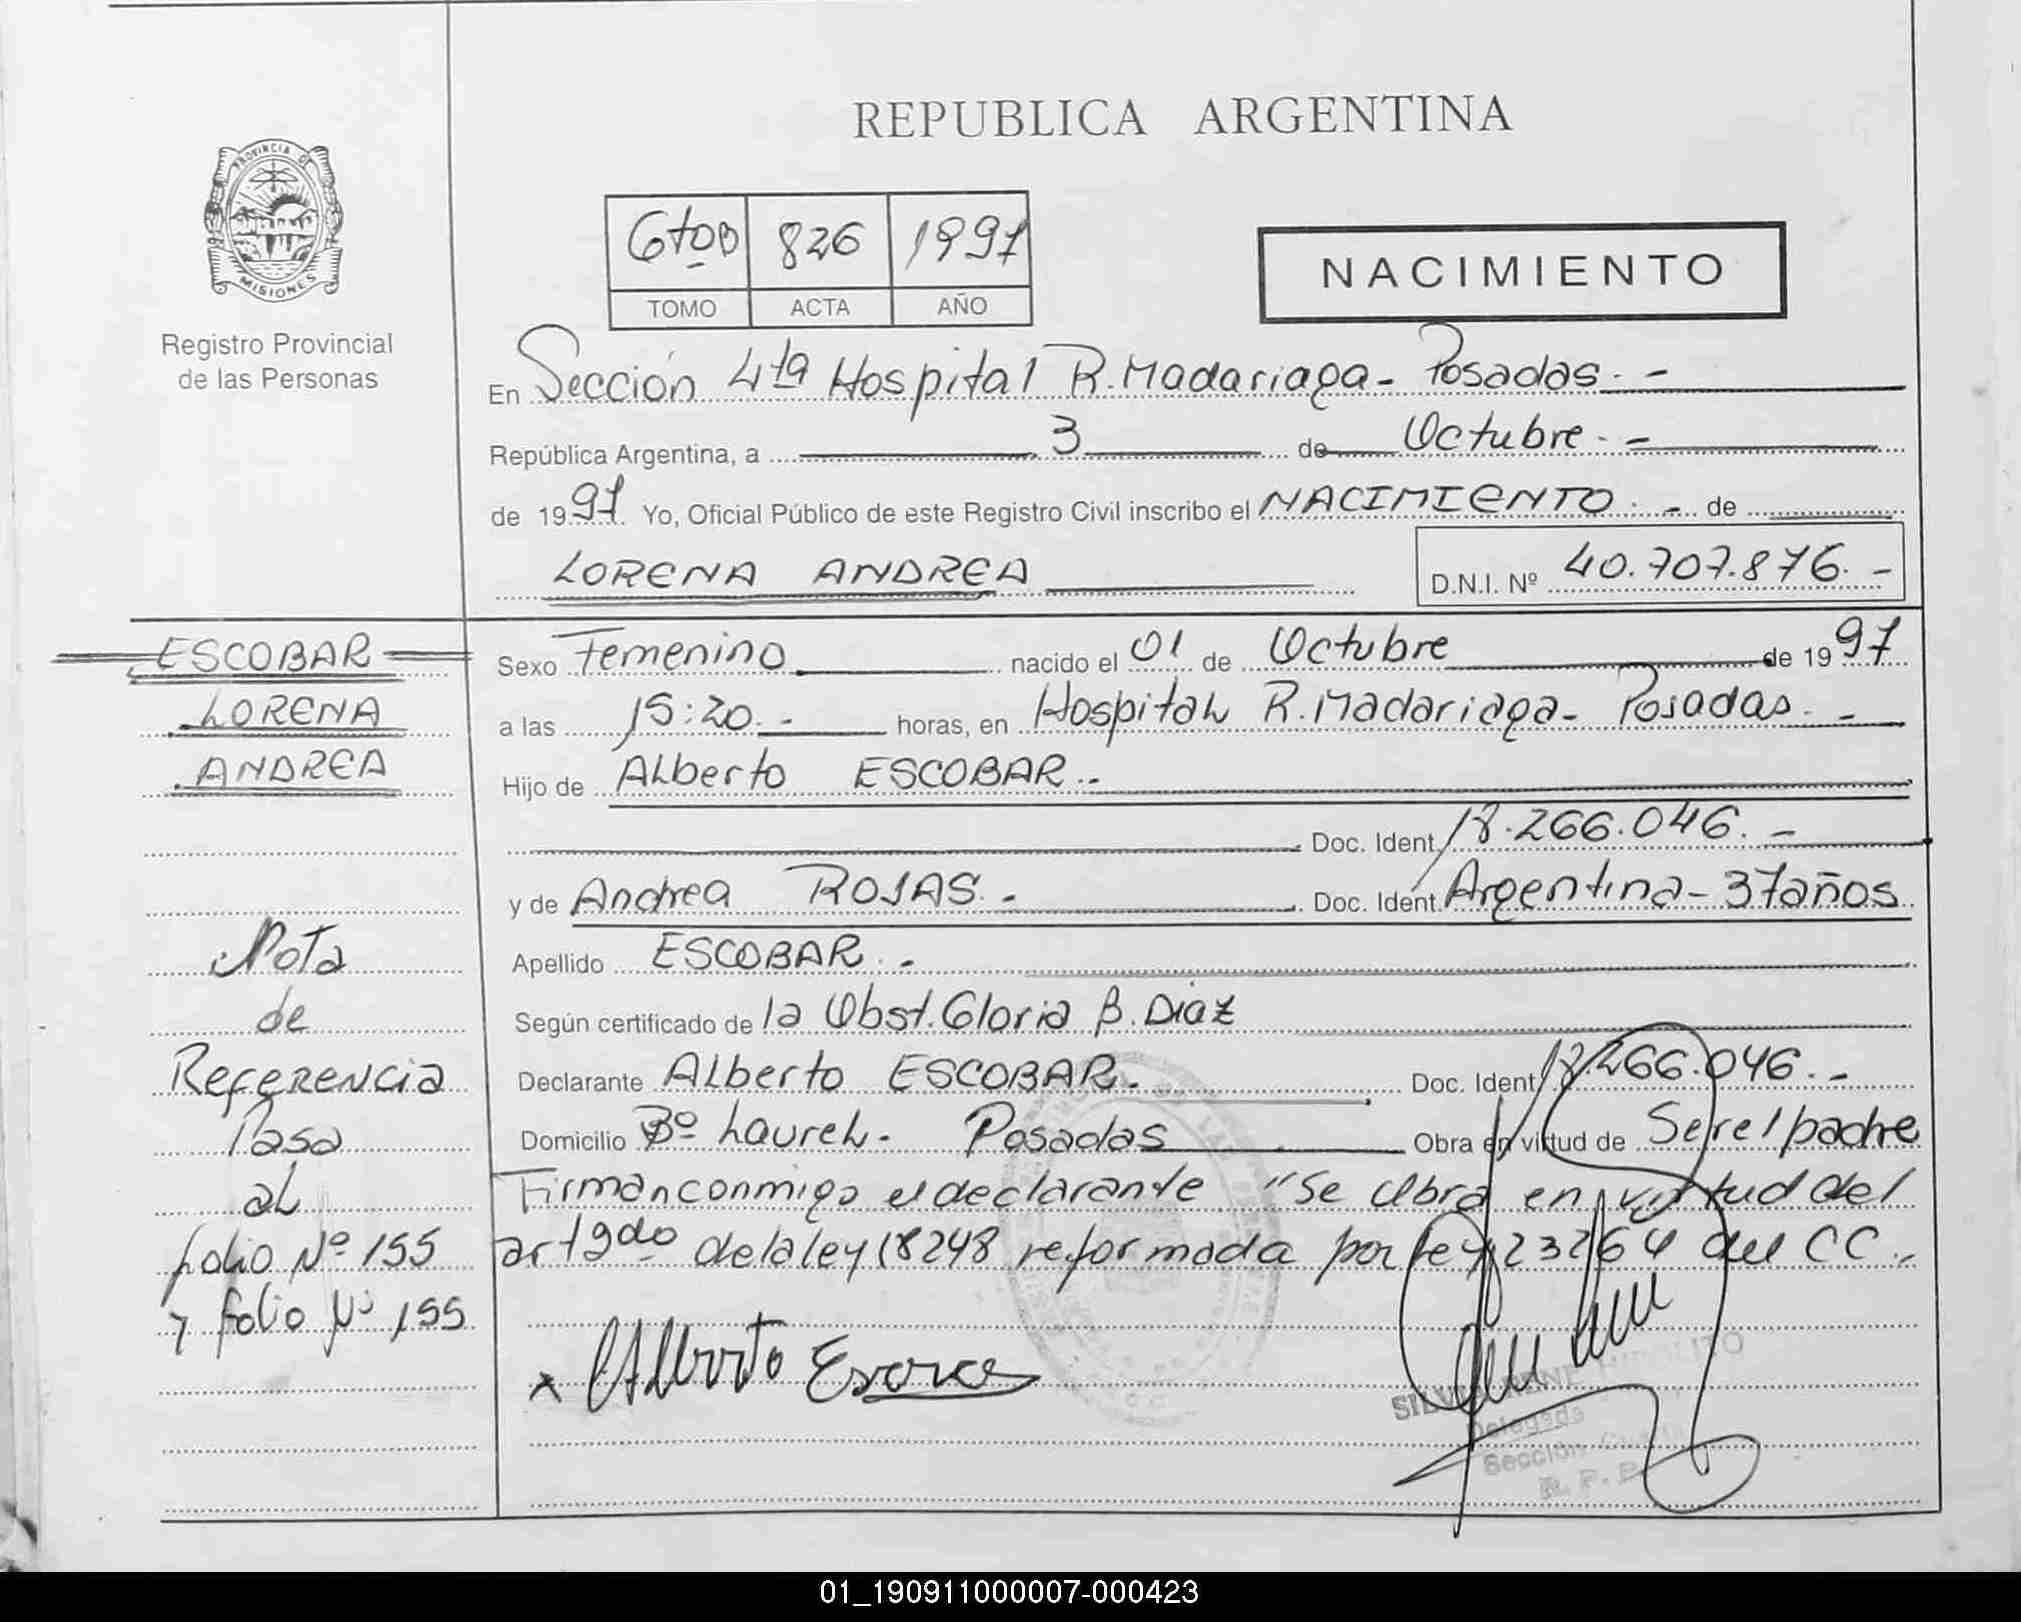 REPUBLICA ARGENTINA
PROVINCIA DE
MISIONES
Registro Provincial
de las Personas
6to B 826 1997
TOMO ACTA AÑO
NACIMIENTO
En Sección 4ta Hospital R. Madariaga - Posadas. -
República Argentina, a 3 de Octubre. -
de 1997 Yo, Oficial Público de este Registro Civil inscribo el NACIMIENTO. - de
LORENA ANDREA D.N.I. Nº 40.707.876. -
ESCOBAR
LORENA
ANDREA
Nota
de
Referencia
Pasa
al
folio Nº 155
y folio Nº 155
Sexo Femenino nacido el 01 de Octubre de 1997
a las 15:20. - horas, en Hospital R. Madariaga - Posadas. -
Hijo de Alberto ESCOBAR. -
Doc. Ident. 18.266.046. -
y de Andrea ROJAS. - Doc. Ident. Argentina - 37 años
Apellido ESCOBAR. -
Según certificado de la Obst. Gloria B. Diaz
Declarante Alberto ESCOBAR. Doc. Ident. 18.266.046. -
Domicilio Bº Laurel. Posadas Obra en virtud de Ser el padre
Firman conmigo el declarante "Se Obra en virtud del
art 2do de la ley 18248 reformada por ley 23264 del CC.
x Alberto
Delegada
Sección
01_190911000007-000423